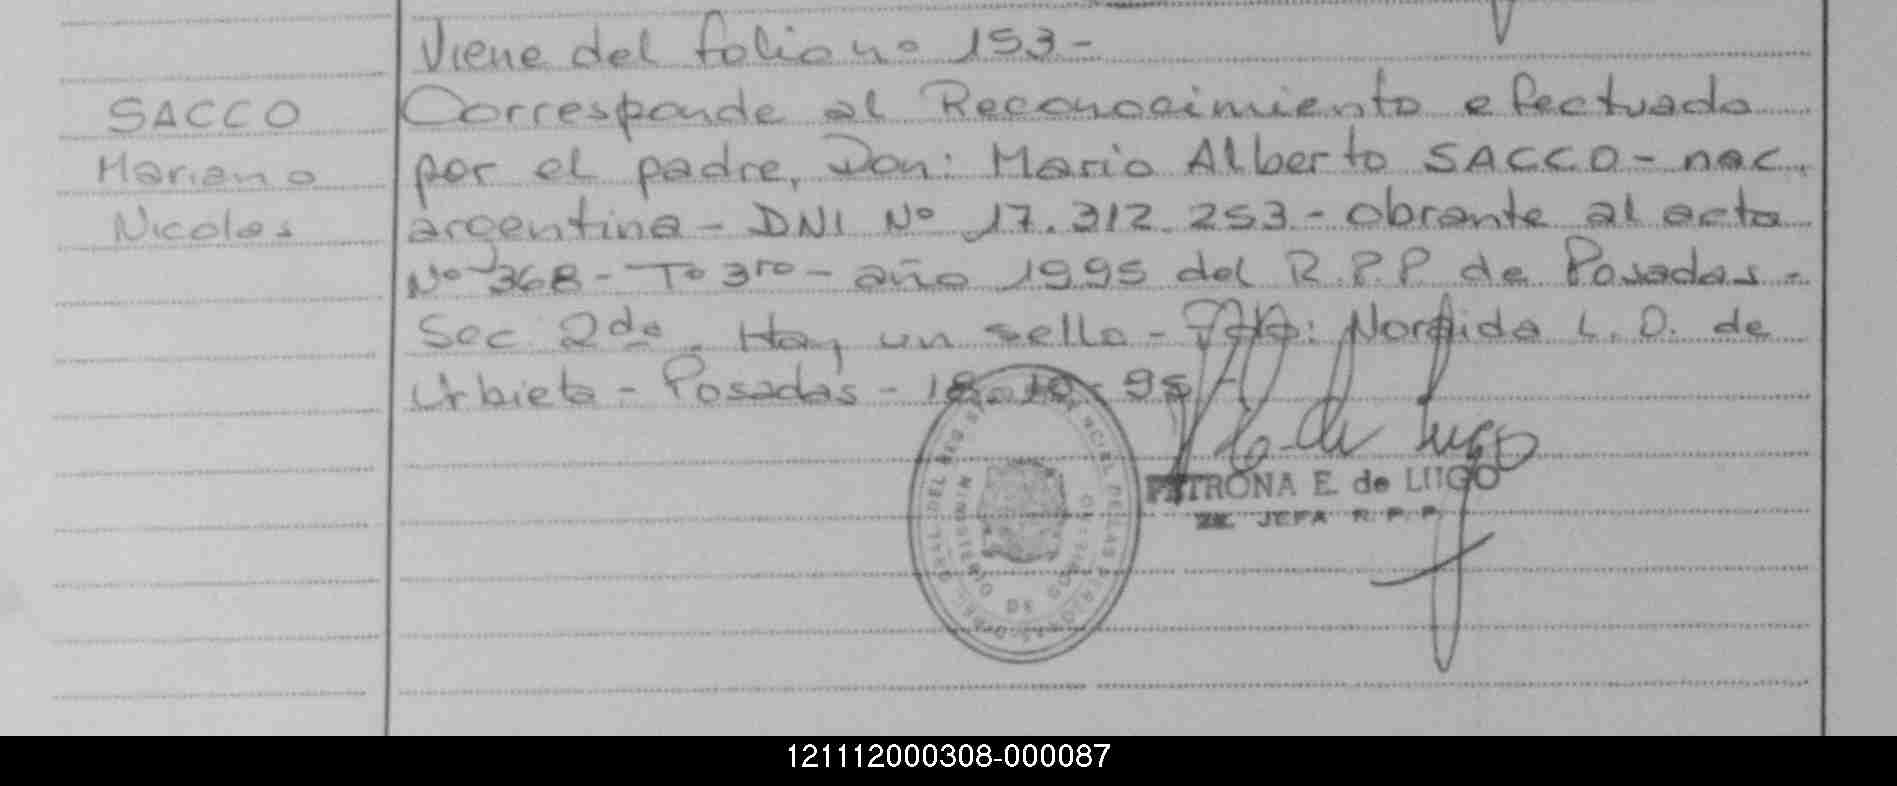 Viene del folio nº 153-
SACCO
Mariano
Nicolas
Corresponde al Reconocimiento efectuado
por el padre, Don: Mario Alberto SACCO - nac.
argentina - DNI Nº 17.312.253 - obrante al acta
Nº 368 - Tº 3ro - año 1995 del R.P.P. de Posadas -
Sec 2da. Hay un sello - Fdo: Norfida L. D. de
Urbieta - Posadas - 18-10-95
PETRONA E. de LUGO
JEFA R. P. P.
MINISTERIO DE GOBIERNO
121112000308-000087